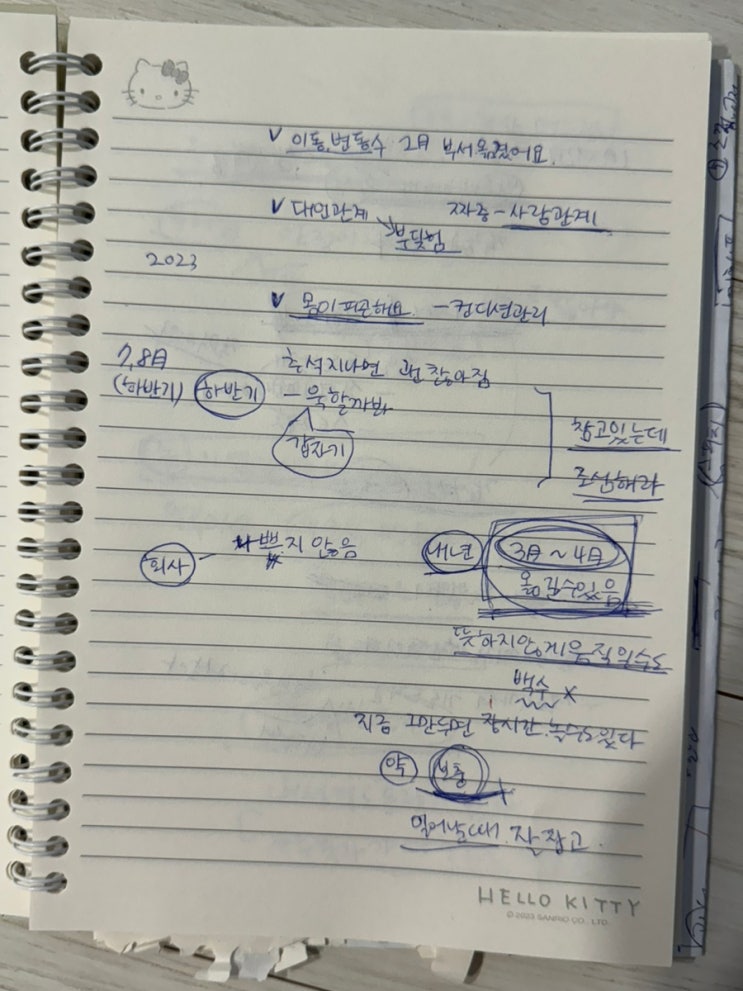 ✓ 이동, 변동수 2月 부서옮겼어요.
✓ 대인관계 짜증 - 사람관계
부딪힘
2023
✓ 몸이피곤해요 - 컨디션관리
7,8月 추석지나면 괜찮아짐
(하반기) 하반기 - 욱할까봐
갑자기
참고있는데
조심해라
회사 - 나쁘지 않음 내년 3月 ~ 4月
옮길수있음
뜻하지않게움직일수도
백수 x
지금 그만두면 장시간 놀수도있다
약 보충
일어날때 잘 잡고.
HELLO KITTY
© 2023 SANRIO CO., LTD.